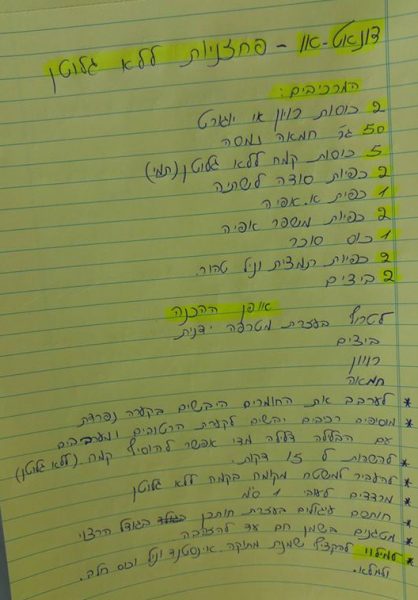 דונאט-און - פחזניות ללא גלוטן
המרכיבים:
2 כוסות רוויון או יוגורט
50 גר חמאה נמסה
5 כוסות קמח ללא גלוטן (תמי)
2 כפיות סודה לשתיה
1 כפית א. אפיה
2 כפיות משפר אפיה
1 כוס סוכר
2 כפיות תמצית וניל טהור.
2 ביצים
אופן ההכנה
לטרוף בעזרת מטרפה ידנית
ביצים
רוויון
חמאה
* לערבב את החומרים היבשים בקערה נפרדת
* מוסיפים רכיבים יבשים לקערת הרטובים ומערבבים
עם הבלילה דלילה מדי אפשר להוסיף קמח (ללא גלוטן)
* להשרות ל 15 דקות.
* להעביר למשטח מקומח בקמח ללא גלוטן
* מרדדים לעובי 1 ס"מ
* חותכים עיגולים בעזרת חותכן בגודל הרצוי
* מטגנים בשמן חם עד להזהבה
* למילוי להקציף שמנת מתוקה אינסטנט וניל וכוס חלב.
ולמלא.